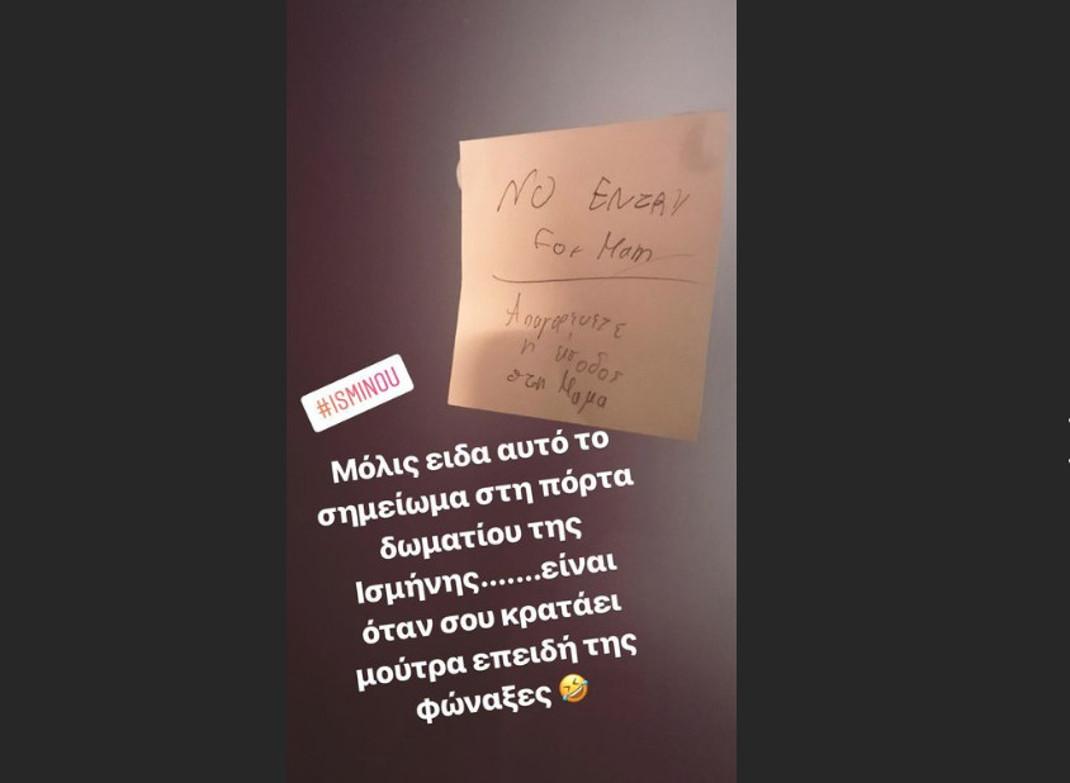 NO ENTRY
For Mam
Απαγορεύετε
η ίσοδος
στη Μαμα
#ISMINOU
Μόλις ειδα αυτό το
σημείωμα στη πόρτα
δωματίου της
Ισμήνης.......είναι
όταν σου κρατάει
μούτρα επειδή της
φώναξες 🤣